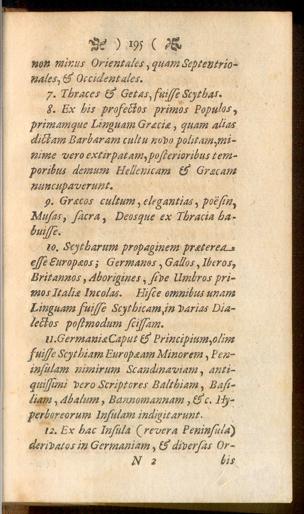 ) 195 (
non minus Orientales, quam Septentrio-
nales, & Occidentales.
7. Thraces & Getas, fuisse Scythas.
8. Ex his profectos primos Populos,
primamque Linguam Græciæ, quam alias
dictam Barbaram cultu novo politam, mi-
nime vero extirpatam, posterioribus tem-
poribus demum Hellenicam & Græcam
nuncupaverunt.
9. Græcos cultum, elegantias, poësin,
Musas, sacra, Deosque ex Thracia ha-
buisse.
10. Scytharum propaginem præterea
esse Europæos; Germanos, Gallos, Iberos,
Britannos, Aborigines, sive Umbros pri-
mos Italiæ Incolas. Hisce omnibus unam
Linguam fuisse Scythicam, in varias Dia-
lectos postmodum scissam.
11. Germaniæ Caput & Principium, olim
fuisse Scythiam Europæam Minorem, Pen-
insulam nimirum Scandinaviam, anti-
quissimi vero Scriptores Balthiam, Basi-
liam, Abalum, Bannomannam, &c. Hy-
perboreorum Insulam indigitarunt.
12. Ex hac Insula (revera Peninsula)
derivatos in Germaniam, & diversas Or-
N 2 bis